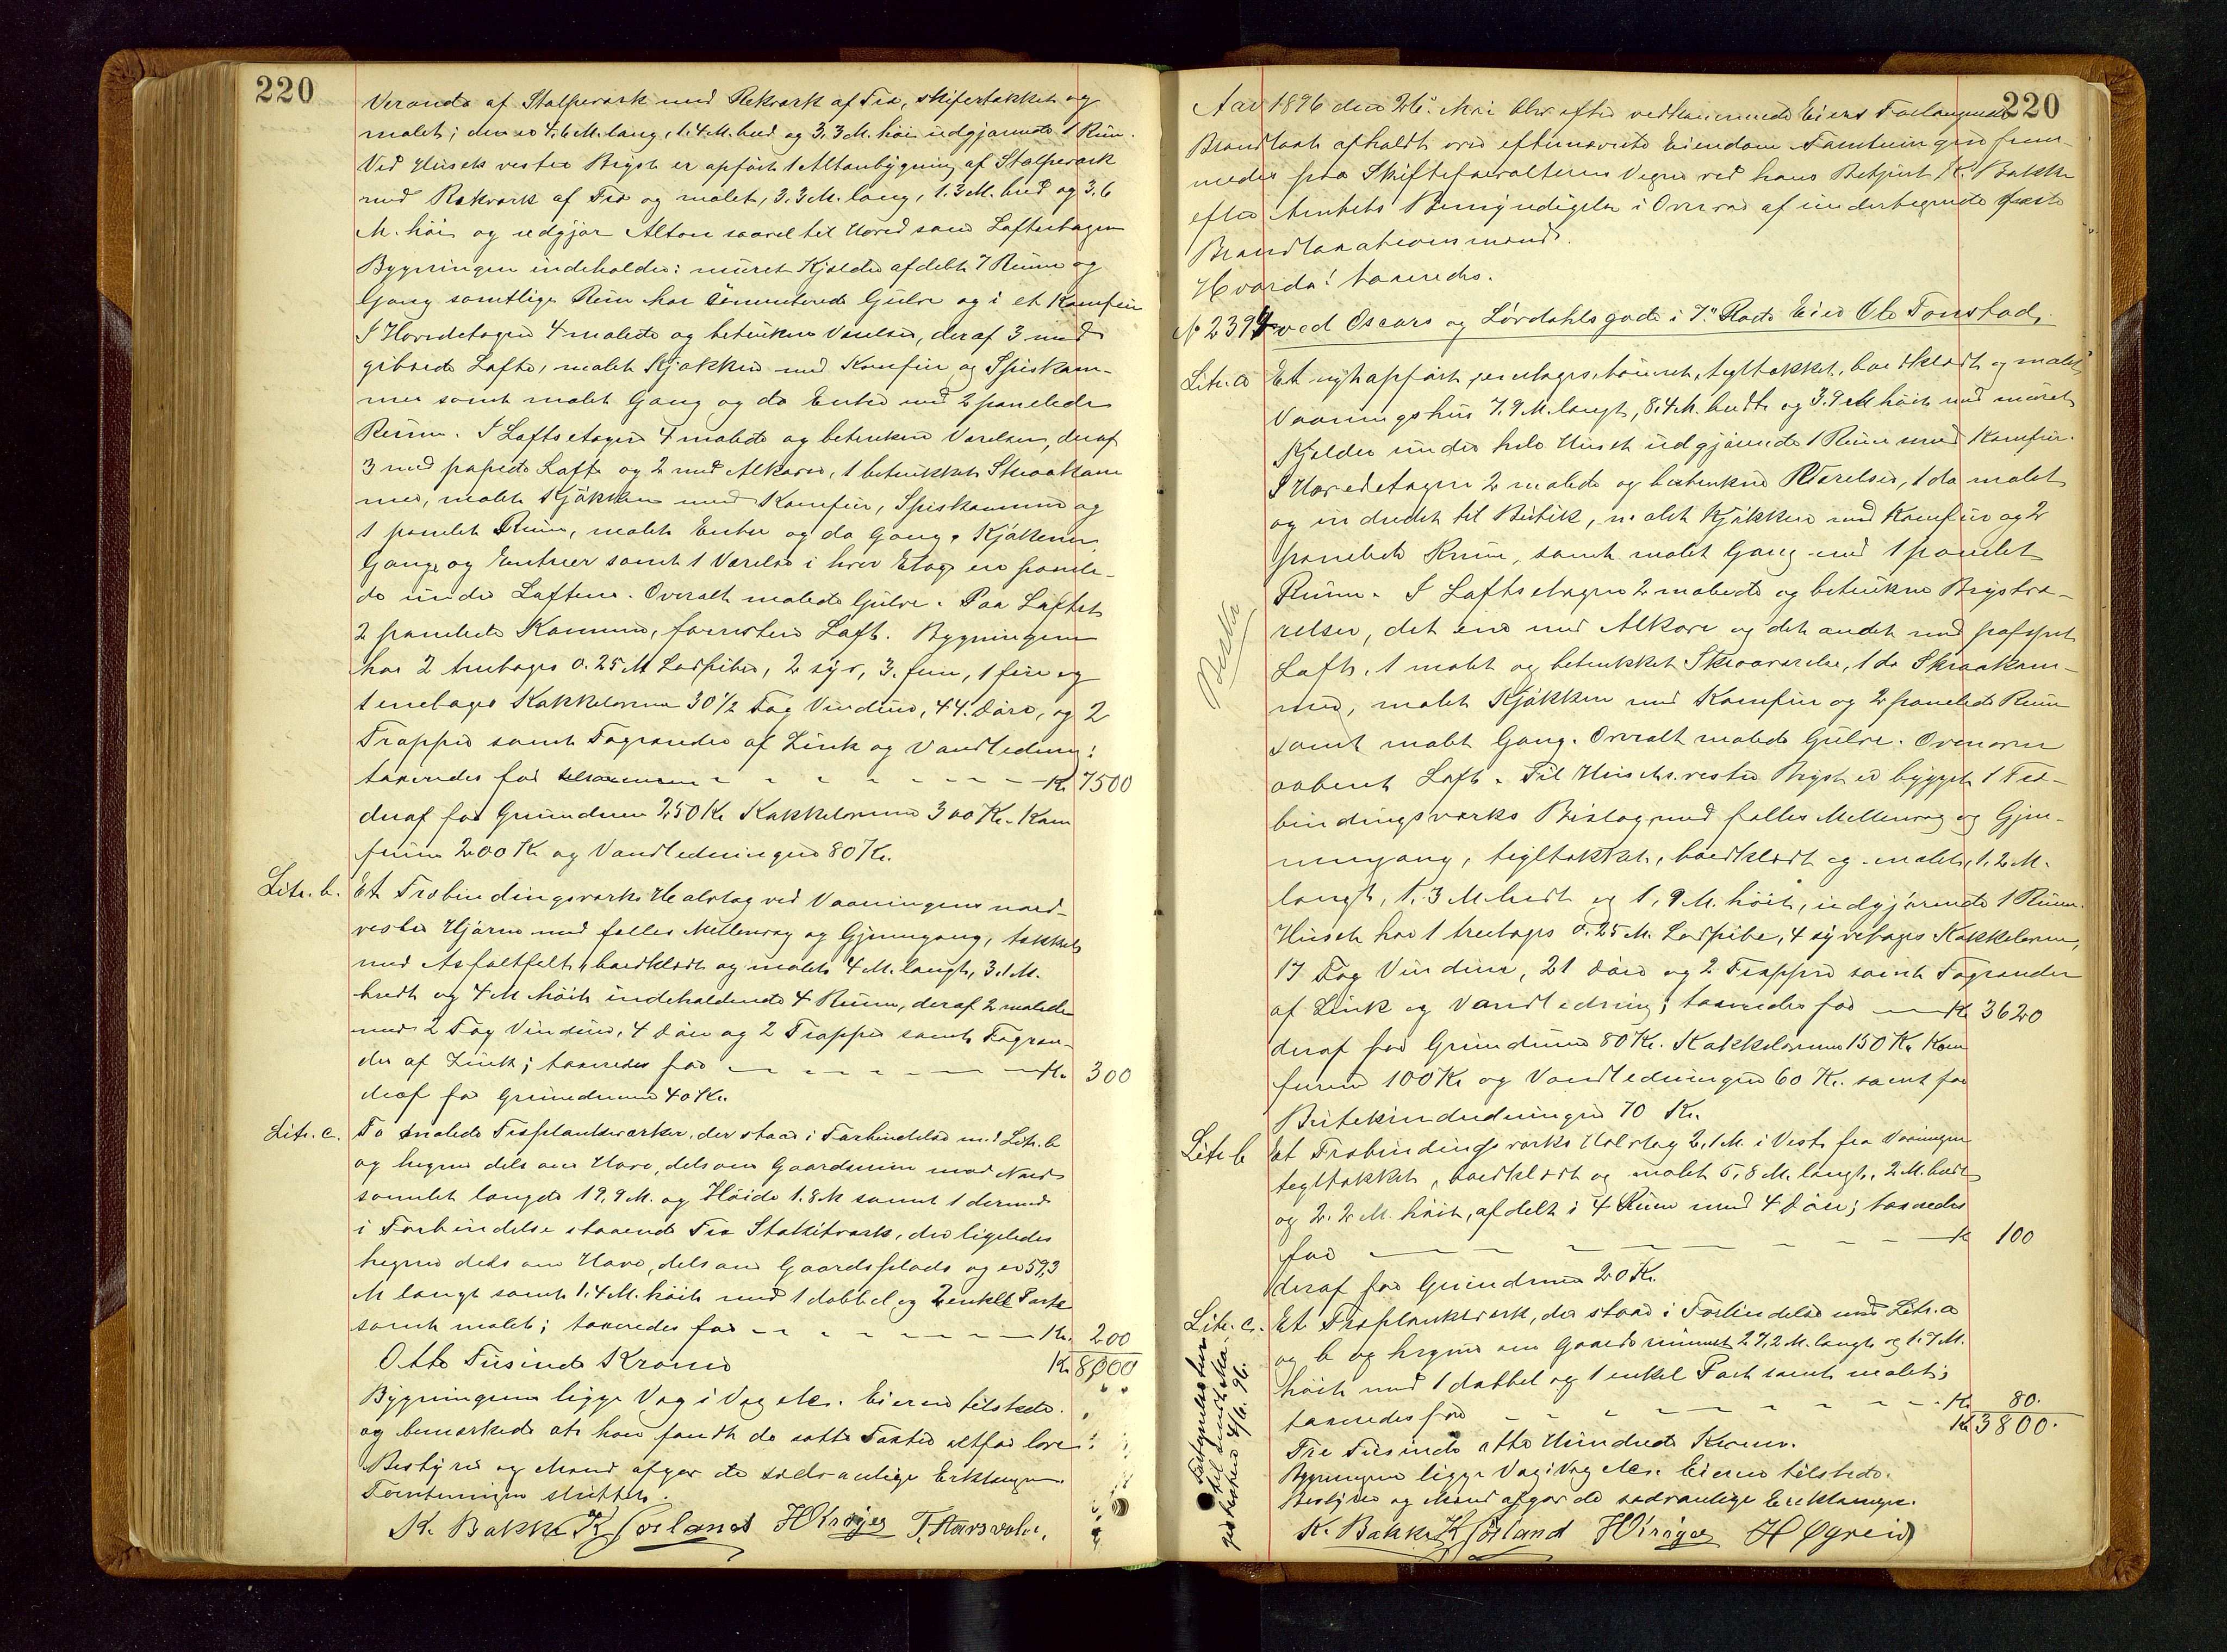 220
Veranda af Stolpeværk med Rekværk af Træ, skifertækket og
malet; den er 4,6 M. lang, 1.4 M. bred og 3,3 M. høi udgjørende 1 Rum.
Ved Husets vestre Bryst er opført 1 Altanbygning af Stolpeværk
med Rekværk af Træ og malet, 3,3 M. lang, 1.3 M. bred og 3,6
M. høi og udgjør Altan saavel til Hoved som Loftsetagen
Bygningen indeholder: muret Kjælder afdelt 7 Rum og
Gang samtlige Rum har sementerede Gulve og i et Komfur
I Hovedetagen 4 malede og betrukne Værelser, deraf 3 med
gibsede Lofte, malet Kjøkken med Komfur og Spiskam-
mer samt malet Gang og do Entre med 2 panelede
Rum. I Loftsetagen 4 malede og betrukne Værelser, deraf
3 med papede Loft og 2 med Alkover, 1 betrukket Skraakam
mer, malet Kjøkken med Komfur, Spiskammer og
1 panelet Rum, malet Entre og do Gang. Kjøkkener,
Gange og Entreer samt 1 Værelse i hver Etage er panele-
de under Loftene. Overalt malede Gulve. Paa Loftet
2 panelede Kammer, forresten Loft. Bygningen
har 2 treetages 0.25 M Ladpiber, 2 syv, 3. fem, 1 fire og
1 treetages Kakkelovne 30½ Fag Vinduer, 44. Døre, og 2
Trapper samt Tagrender af Zink og Vandledning;
taxeredes for - - - - - - - Kr. 7500
deraf for Grundmuren 250 Kr. Kakkelovnene 300 Kr. Kom
furene 200 Kr og Vandledningen 80 Kr.
Litr. b. Et Træbindingsværks Halvtag ved Vaaningens nord-
vestre Hjørne med fælles Mellemvæg og Gjennemgang, tækket
med Asfaltfelt, bordklædt og malet 4 M. langt, 3,1 M.
bredt og 4 M høit indeholdende 4 Rum, deraf 2 malede
med 2 Fag Vinduer, 4 Døre og 2 Trapper samt Tagren-
der af Zink; taxeredes for - - - - - - Kr. 300
deraf for Grundmuren 40 Kr.
Litr. c. To malede Træplankeværker, der staar i Forbindelse med Litr. b
og hegner dels om Have, dels om Gaardsrum mod Nord
samlet længde 19,9 M. og Høide 1.8 M samt 1 dermed
i Forbindelse staaende Træ Stakitværk, der ligeledes
hegner dels om Have, dels om Gaardsplads og er 59,3
M langt samt 1,4 M. høit med 1 dobbel og 2 enkle Porte
samt malet; taxeredes for - - - - - - - Kr. 200
Otte Tusinde Kroner Kr. 8000
Bygningerne ligge Væg i Væg etc. Eieren tilstede
og bemærkede at han fandt de satte Taxter altfor lave.
Bestyrer og Mænd afgav de sædvanlige Erklæringer.
Forretningen sluttet.
K. Bakke K Jøsland HKrøger T. Haarsvaler.
220
Aar 1896 den 26. Mai blev efter vedkommende Eiers Forlangende
Brandtaxt afholdt over efternævnte Eiendom. Forretningen frem-
medes paa Skifteforvalterens Vegne ved hans Betjent K. Bakke
efter Amtets Bemyndigelse i Overvær af undertegnede faste
Brandtaxationsmænd.
Hvorda! taxeredes.
No 2394 ved Oscars og Løvdahlsgade i 7de Rode Eier Ole Tonstad.
Litr. a Et nyt opført, eenetages, tømret, tegltækket, bordklædt og malet
Vaaningshus 7,9 M. langt, 8,4 M. bredt og 3.9 M høit med muret
Kjelder under hele Huset udgjørende 1 Rum med Komfur.
I Hovedetagen 2 malede og betrukne Værelser, 1 do malet
og indredet til Butik, malet Kjøkken med Komfur og 2
panelede Rum, samt malet Gang med 1 panelet
Rum. I Loftsetagen 2 malede og betrukne Brystvæ-
relser, det ene med Alkove og det andet med pappet
Loft, 1 malet og betrukket Skraaværelse, 1 do Skraakam-
mer, malet Kjøkken med Komfur og 2 panelede Rum
samt malet Gang. Overalt malede Gulve. Ovenover
aabent Loft. Til Husets vestre Bryst er bygget 1 Træ-
bindingsværks Bislag med fælles Mellemvæg og Gjen-
nemgang, tegltækket, bordklædt og malet, 1.2 M.
langt, 1.3 M. bredt og 1,9 M. høit, udgjørende 1 Rum.
Huset har 1 treetages 0.25 M. Ladpibe, 4 syvetages Kakkelovne,
17 Fag Vinduer, 21 Døre og 2 Trapper samt Tagrender
af Zink og Vandledning; taxeredes for - Kr 3620
deraf for Grundmuren 80 Kr. Kakkelovnene 150 Kr. Kom
furene 100 Kr og Vandledningen 60 Kr. samt for
Butikindredningen 70 Kr.
Litr b Et Træbindingsværks Halvtag 2,1 M. i Vest fra Vaaningen
tegltækket, bordklædt og malet 5,8 M. langt, 2 M. bredt
og 2.2 M. høit, afdelt i 4 Rum med 4 Døre; taxeredes
for - - - - - - - - Kr 100
deraf for Grundmuren 20 Kr.
Litr. c. Et Træplankeværk, der staar i Forbindelse med Litr. a
og b og hegner om Gaardsrummet 27,2 M. langt og 1.7 M.
høit med 1 dobbel og 1 enkel Port samt malet;
taxeredes for - - - - - - - - Kr 80.
Kr 3800.
Tre Tusinde otte Hundrede Kroner.
Bygningerne ligge Væg i Væg etc. Eieren tilstede.
Bestyrer og Mænd afgav de sædvanlige Erklæringer.
K. Bakke K Jøsland HKrøger H Øgreid